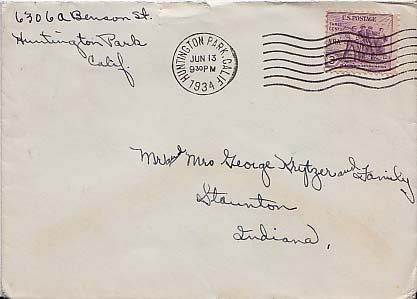 6306A Benson St.
Huntington Park
Calif.
HUNTINGTON PARK, CALIF.
JUN 13
9 30 PM
1934
U.S. POSTAGE
THREE CENTS
3
Mr and Mrs George Kritzer and Family
Staunton
Indiana,